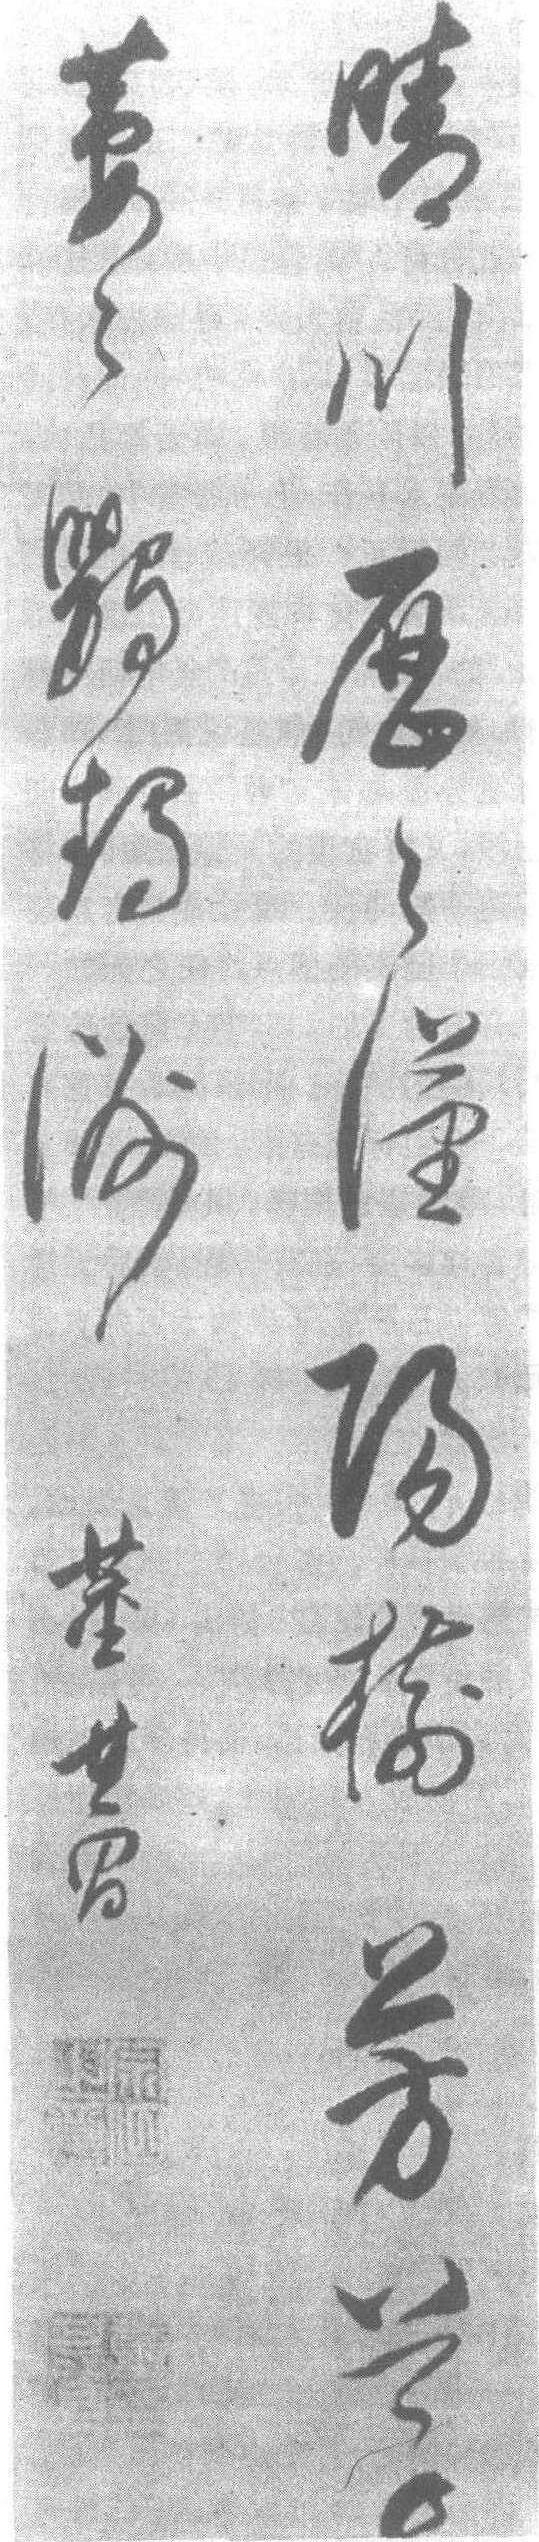 晴川歷々漢陽樹芳草
萋々鸚鵡洲 董其昌